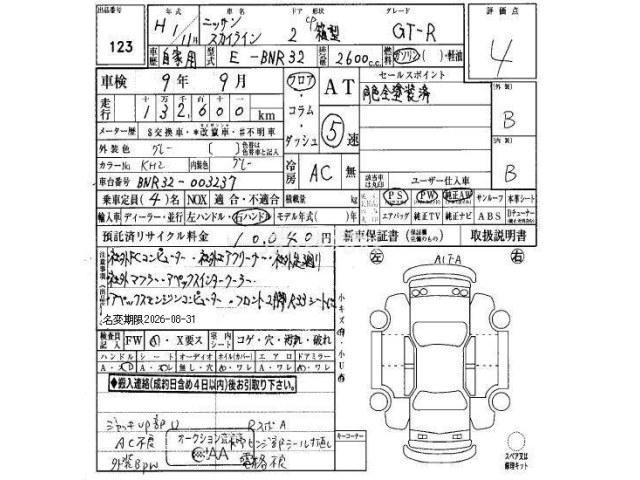 出品番号 123
年式 H1/11月
車名 ニッサン スカイライン
ドア 形状 2 CP 箱型
グレード GT-R
評価点 4
車歴 自家用
型式 E-BNR32
排気量 2600c.c.
燃料 ガソリン( )・軽油
車検 9年 9月
フロア・コラム・ダッシュ
AT
5速
セールスポイント
同色全塗装済
走行 132,600km
十万千百十一
メーター歴 $交換車・*改竄車・#不明車
(外装) B
外装色 グレー [ ] 色替は色替車と記入
カラーNo. KH2 内装色 グレー
冷房 AC 無
該当車は丸印 ユーザー仕入車
(内装) B
車台番号 BNR32-003237
乗車定員(4)名 NOX 適合・不適合 積載量 kg
PS PW 純正AW サンルーフ 本革シート
輸入車 ディーラー・並行 左ハンドル・右ハンドル モデル年式( )年
エアバッグ 純正TV 純正ナビ ABS Dチューナー
預託済リサイクル料金 10,040円 新車保証書 取扱説明書
注意事項(出品店)
社外FCコンピューター・社外エアクリーナー・社外足廻り
社外マフラー・アペックスインタークーラー
アペックスエンジンコンピューター・フロント2脚R33シート
名変期限2026-08-31
左 右
AITA
小キズ・小U
検査員記入 FW X要ス 室内シート コゲ・穴・汚れ・破れ
ハンドル シート オーディオ ホイル(カバー) エアロ ドアミラー
A・スレ A・スレ 無し・穴 め・ワレ め・ワレ め・ワレ
◆搬入連絡(成約日含め4日以内)後お引取り下さい。
ジャッキUP部U
AC不良
外装BPW
オークション
AA
電格不良
キーコーナー
スペア又は修理キット